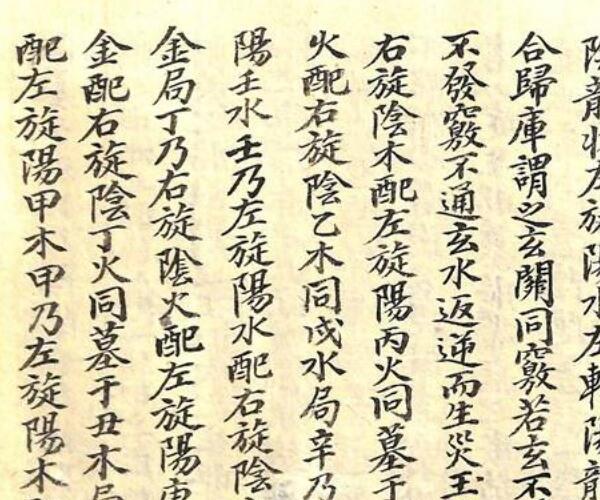 陰龍將左旋陽水左轉陽龍
合歸庫謂之玄關同竅若玄不
不發竅不通玄水返逆而生災玉
右旋陰木配左旋陽丙火同墓于
火配右旋陰乙木同戍水局辛乃
陽壬水壬乃左旋陽水配右旋陰
金局丁乃右旋陰火配左旋陽庚
金配右旋陰丁火同墓于丑木局
配左旋陽甲木甲乃左旋陽木